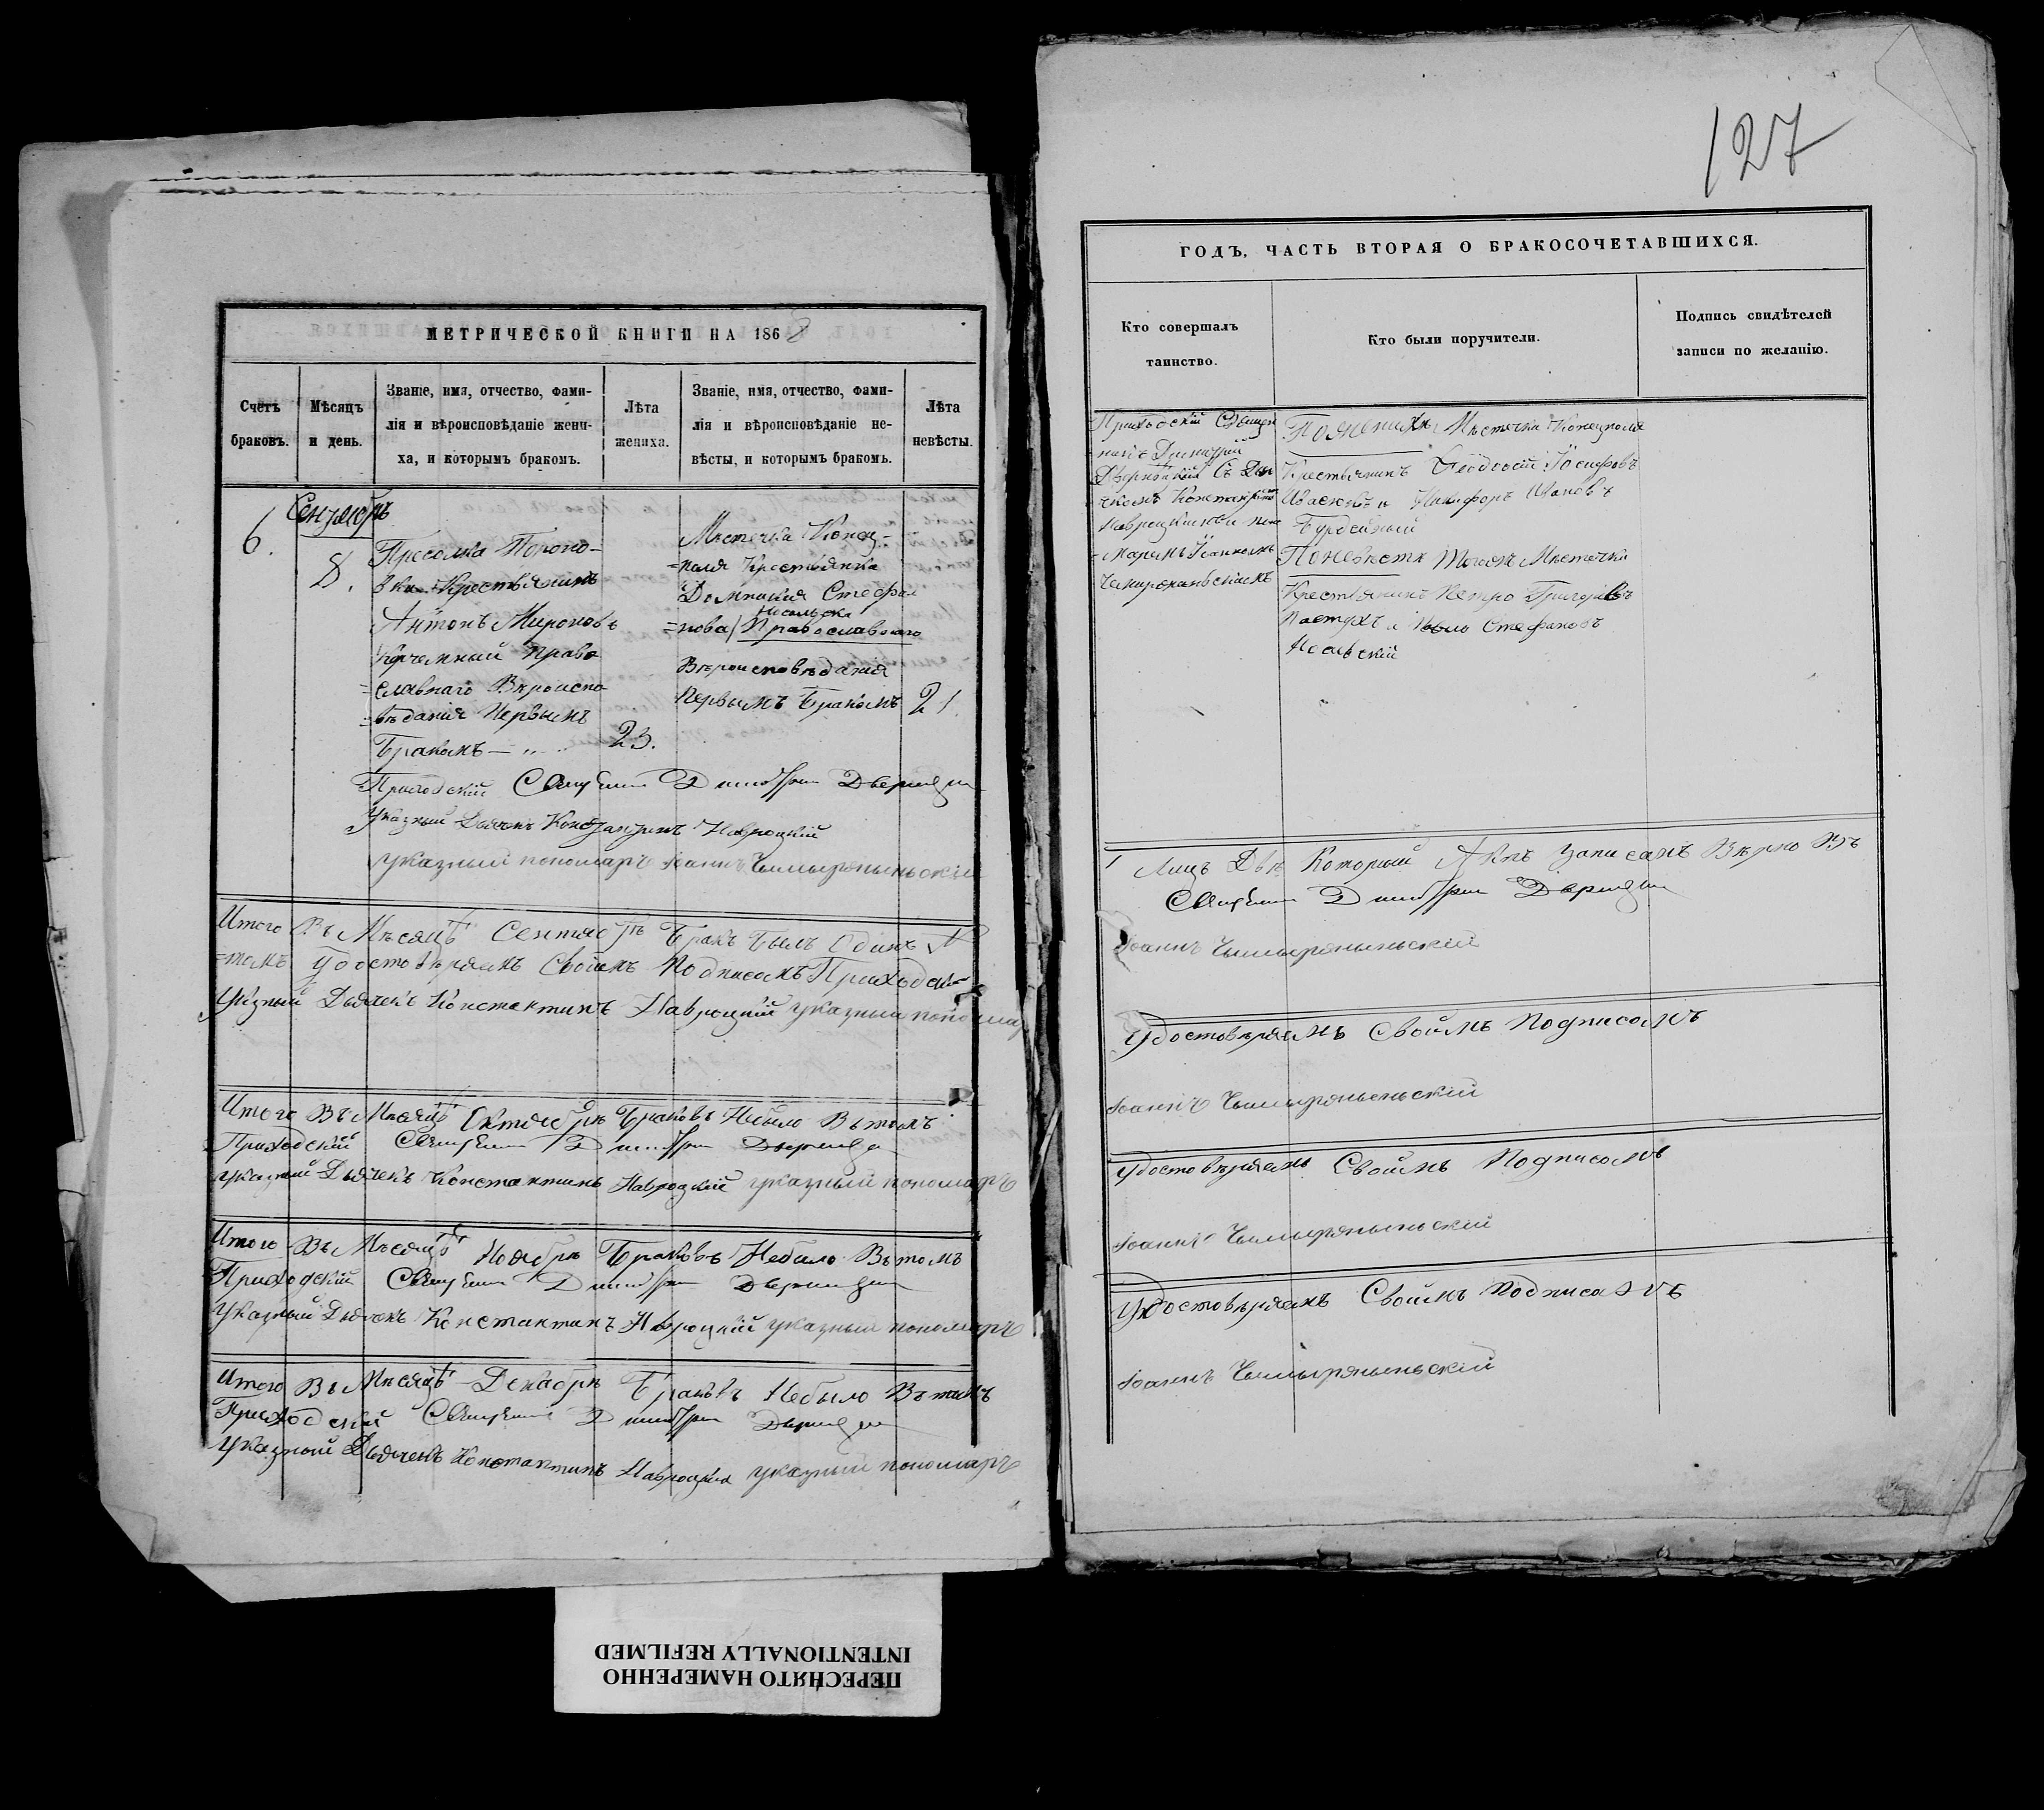 127
МЕТРИЧЕСКОЙ КНИГИ НА 1868
Счетъ браковъ.
Мѣсяцъ и день.
Званіе, имя, отчество, фами-
лія и вѣроисповѣданіе жени-
ха, и которымъ бракомъ.
Лѣта жениха.
Званіе, имя, отчество, фами-
лія и вѣроисповѣданіе не-
вѣсты, и которымъ бракомъ.
Лѣта невѣсты.
Сентябрь
6.
8.
Крестьянинъ
Антонъ Мироновъ
Корчемный Право
=славнаго Вѣроиспо
=вѣданія Первымъ
Бракомъ — 23.
Мѣстечка Конец-
=поля Крестьянка
Домникія Стефа
=нова / Православнаго
Вѣроисповѣданія
Первымъ Бракомъ 21.
Приходскій Священникъ Димитрій
Указный Дьячекъ Константинъ Навроцкій
указный пономарь Іоаннъ
Итого Въ Мѣсяцѣ Сентябрѣ Бракъ Былъ Одинъ
=томъ Удостовѣряемъ Своимъ Подписомъ
Указный Дьячекъ Константинъ Навроцкій указный пономар
Итого Въ Мѣсяцѣ Октябрѣ Браковъ Небыло Вътомъ
Приходскій Священникъ Димитрій
указный Дьячекъ Константинъ Навроцкій указный пономарь
Итого Въ Мѣсяцѣ Ноябрѣ Браковъ Небыло Вътомъ
Приходскій Священникъ Димитрій
Указный Дьячекъ Константинъ Навроцкій указный пономарь
Итого Въ Мѣсяцѣ Декабрѣ Браковъ Небыло Вътомъ
Приходскій Священникъ Димитрій
Указный Дьячекъ Константинъ Навроцкій указный пономарь
ГОДЪ, ЧАСТЬ ВТОРАЯ О БРАКОСОЧЕТАВШИХСЯ.
Кто совершалъ
таинство.
Кто были поручители.
Подпись свидѣтелей
записи по желанію.
Приходскій Священ
никъ Димитрій
съ Дья
чкомъ Константиномъ
Навроцкимъ и поно
=маремъ Іоанномъ
Пожениху Мѣстечка Конецполя
Крестьянинъ Феодосій Іосифовъ
и Никифоръ Ивановъ
Бурдейный
Поневѣстѣ Тогожъ Мѣстечка
Крестьянинъ Петро Григорієвъ
Пастухъ и Стефановъ
Носальскій
Лицъ Двѣ Который Актъ Записанъ Вѣрно Въ
Священникъ Димитрій
Іоаннъ
Удостовѣряемъ Своимъ Подписомъ
Іоаннъ
Удостовѣряемъ Своимъ Подписомъ
Іоаннъ
Удостовѣряемъ Своимъ Подписомъ
Іоаннъ
ПЕРЕСНЯТО НАМЕРЕННО
INTENTIONALLY REFILMED